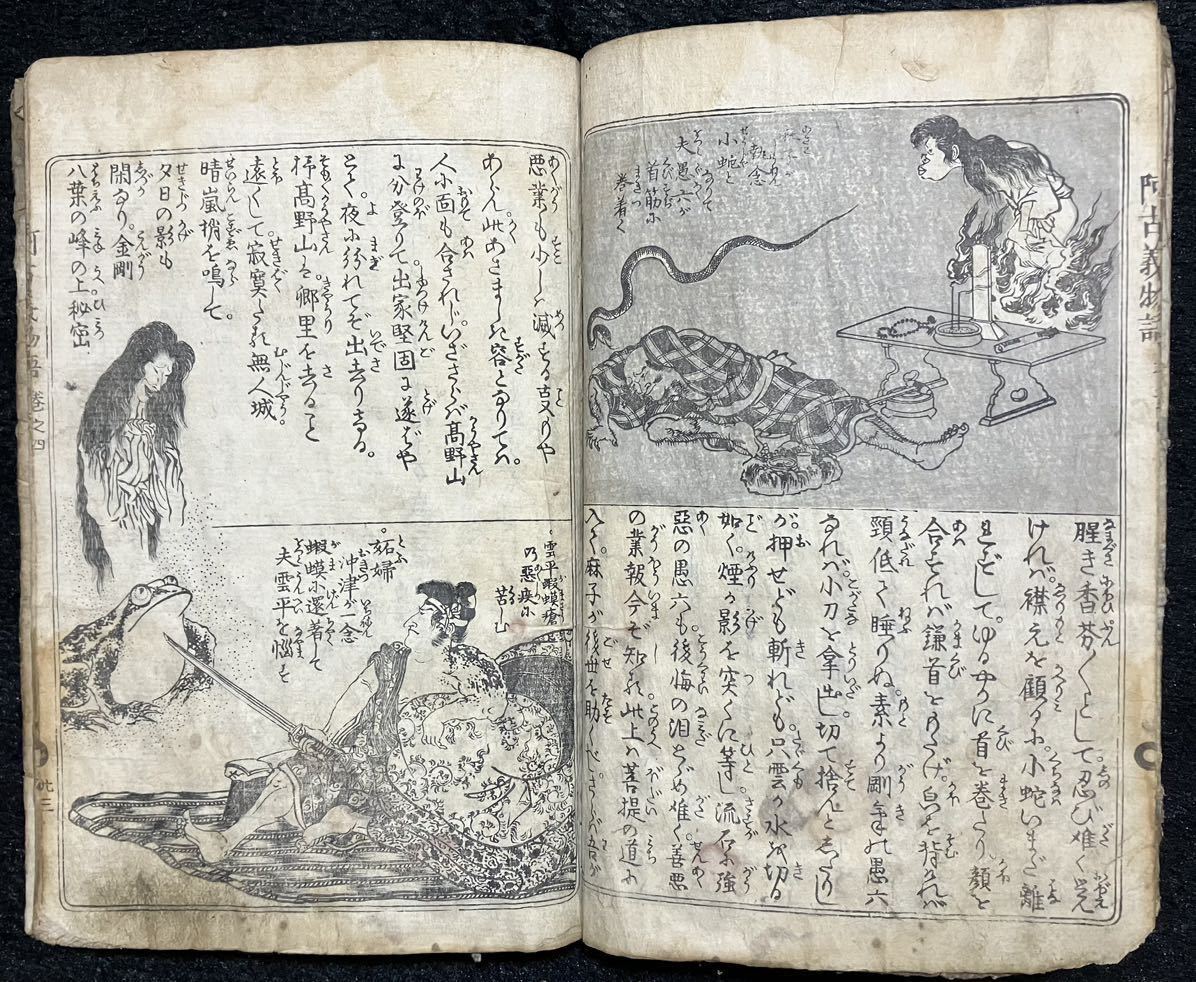 阿古義物語
執念
小蛇と
夫愚六が
首筋に
巻着く
腥き香芬〱として忍び難く覚え
ければ襟元を顧るに小蛇いまだ離
れずしてゆるやかに首を巻きたり顔を
合すれば鎌首をもたげ臭を背ければ
頸低て睡りぬ素より剛気の愚六
なれば小刀を拿出し切て捨んとしたり
が押せども斬れども只雲か水を切る
如く煙か影を突くに等し流石強
悪の愚六も後悔の泪とゞめ難く善悪
の業報今ぞ知れ此上は菩提の道に
入て麻子が後世を助くべしさらば吾が
悪業も少しは減する支りや
あらん此あさましき容となりては
人に面も合されじいざさらば高野山
に分登りて出家堅固に遂ばや
とて夜に紛れてぞ出去りける
抑高野山は郷里を去ること
遠くして寂寞たる無人城
晴嵐梢を鳴して
夕日の影も
閑なり金剛
八葉の峰の上秘密
雲平蝦蟆瘡
の悪疾に
苦しむ
妬婦
沖津が念
蝦蟆に還着して
夫雲平を悩す
巻之四
廿三